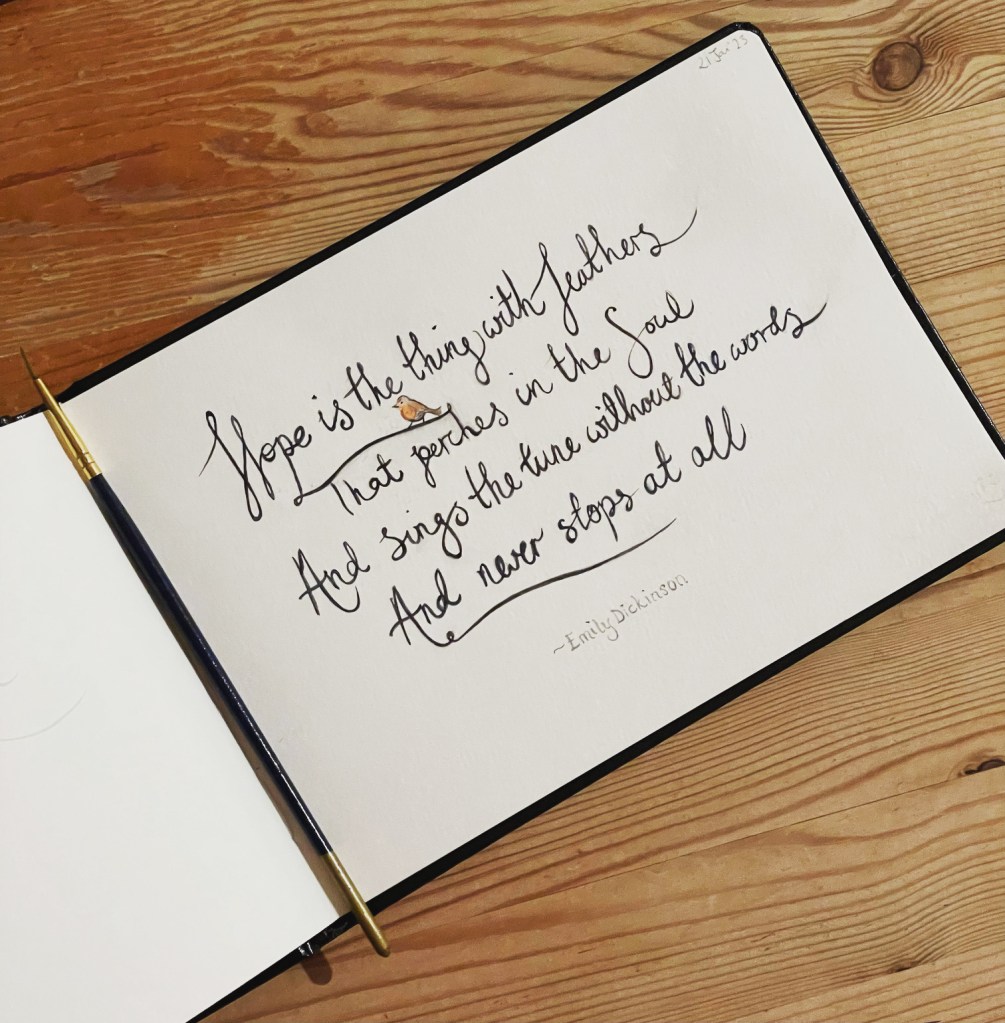 21 Jan '25
Hope is the thing with feathers
That perches in the Soul
And sings the tune without the words
And never stops at all
~Emily Dickinson